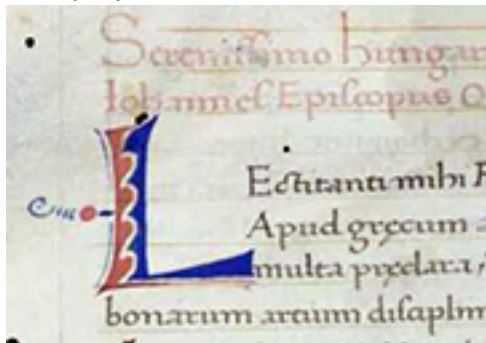 Sereniſſimo hungar
Iohanneſ Epiſcopus Q
LEctitanti mihi F
Apud gręcum a
multa pręclara,
bonarum artium diſciplin